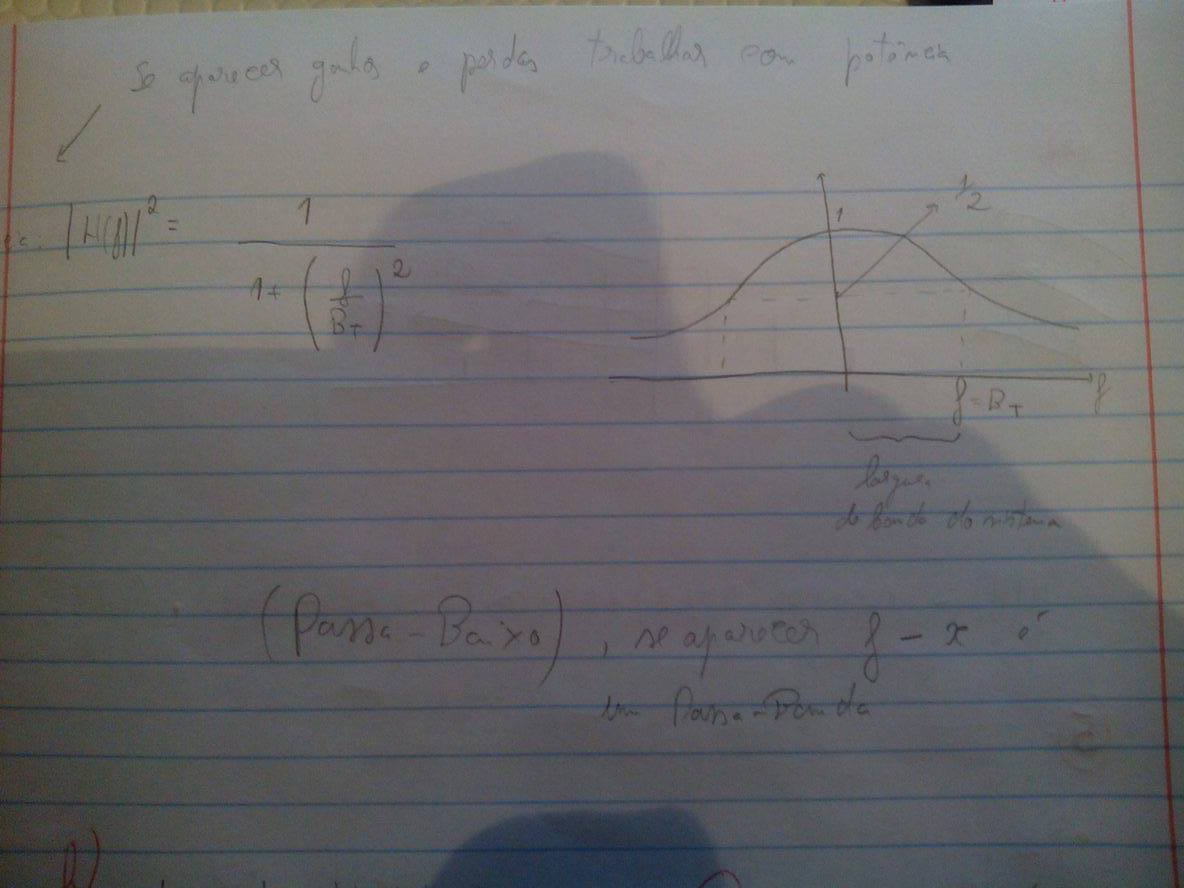 Se aparecer ganhos e perdas trabalhar com potência
|H(f)|² = 1 / (1 + (f/B_T)²)
1
1/2
f = B_T
f
largura
de banda do sistema
(Passa-Baixo), se aparecer f - x é
um Passa-Banda
b)